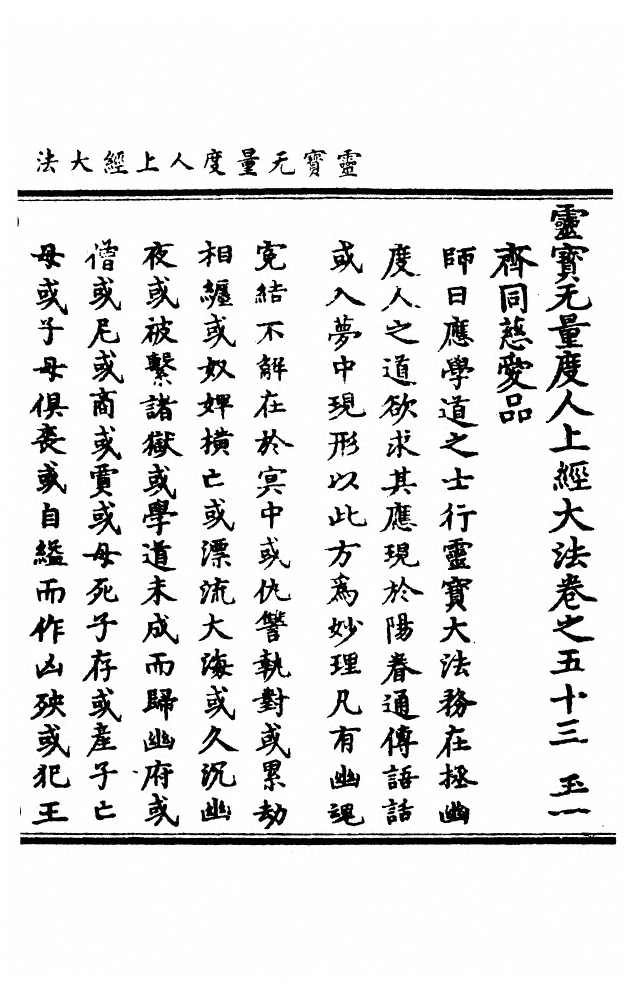 靈寳无量度人上經大法
靈寳无量度人上經大法卷之五十三 玉一
齊同慈愛品
師曰應學道之士行靈寳大法務在拯幽
度人之道欲求其應現於陽眷通傳語話
或入夢中現形以此方爲妙理凡有幽魂
寃結不解在於冥中或仇讐執對或累劫
相纏或奴婢橫亡或漂流大海或久沉幽
夜或被繫諸獄或學道未成而歸幽府或
僧或尼或商或賈或母死子存或産子亡
母或子母俱喪或自縊而作凶殃或犯王